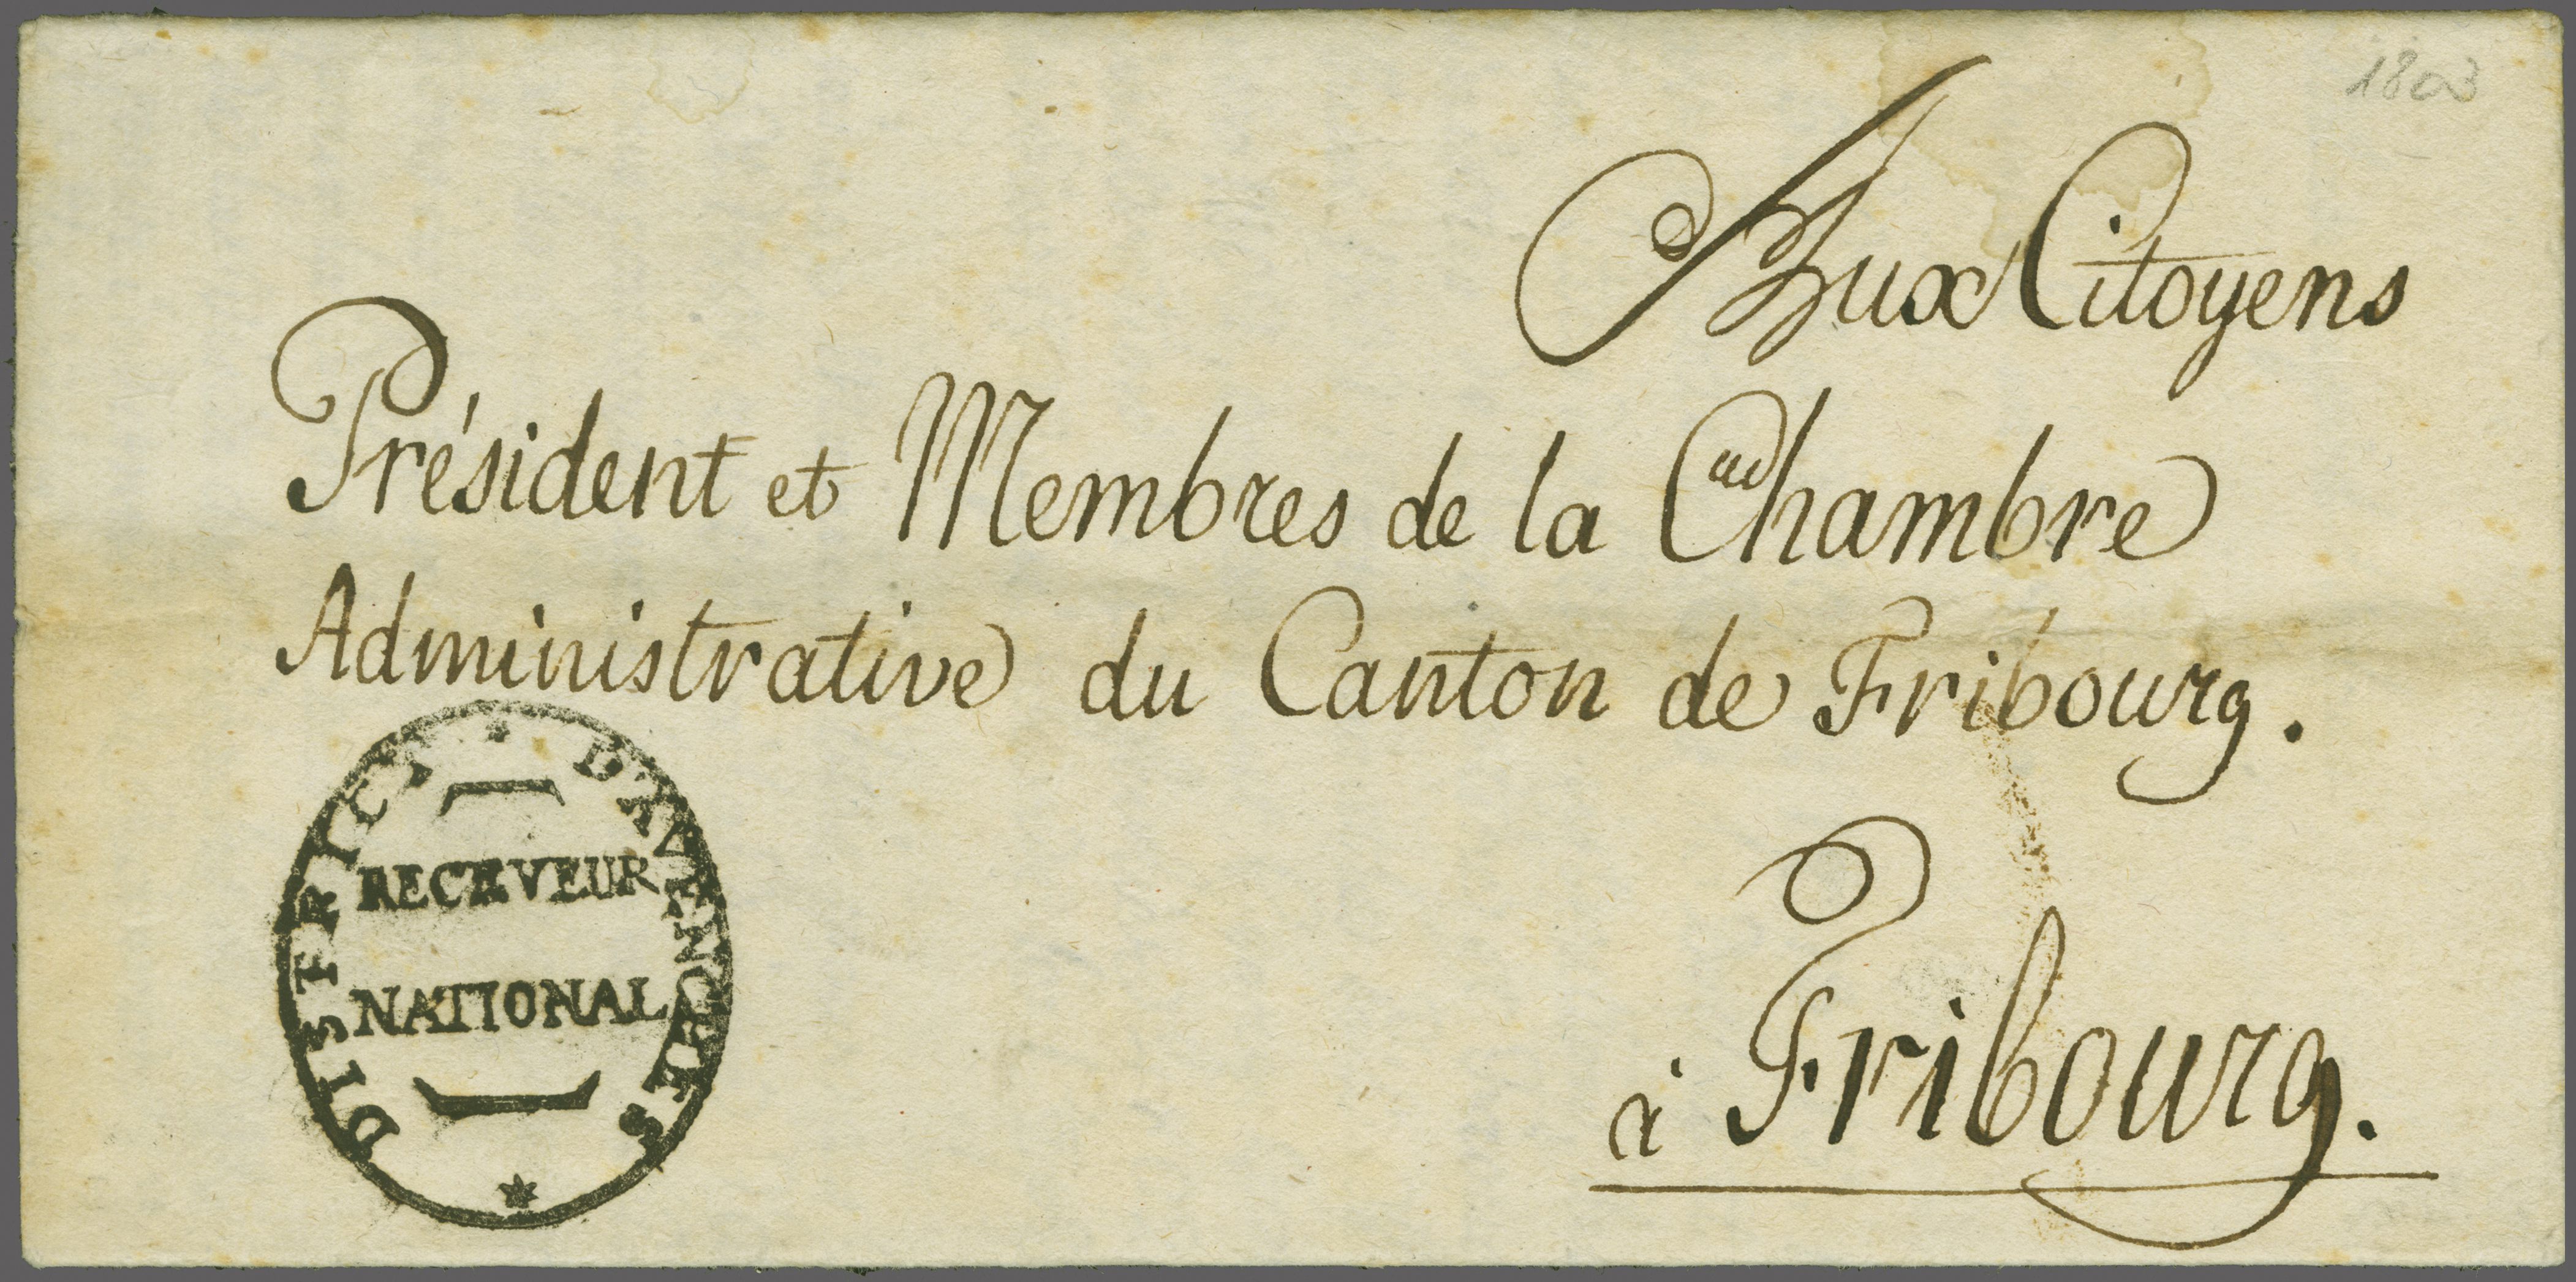 1803
Aux Citoyens
Président et Membres de la Chambre
Administrative du Canton de Fribourg.
DISTRICT D'AVENCHES
RECEVEUR
NATIONAL
à Fribourg.